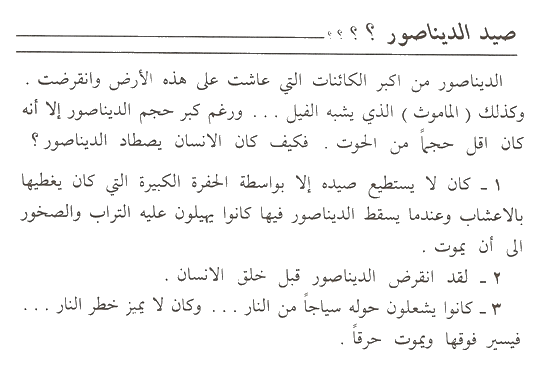 صيد الديناصور ؟ ؟ ؟ ؟
الديناصور من اكبر الكائنات التي عاشت على هذه الأرض وانقرضت .
وكذلك ( الماموث ) الذي يشبه الفيل . . . ورغم كبر حجم الديناصور إلا أنه
كان اقل حجماً من الحوت . فكيف كان الانسان يصطاد الديناصور ؟
١ ـ كان لا يستطيع صيده إلا بواسطة الحفرة الكبيرة التي كان يغطيها
بالاعشاب وعندما يسقط الديناصور فيها كانوا يهيلون عليه التراب والصخور
الى أن يموت .
٢ ـ لقد انقرض الديناصور قبل خلق الانسان .
٣ ـ كانوا يشعلون حوله سياجاً من النار . . . وكان لا يميز خطر النار . . .
فيسير فوقها ويموت حرقاً .